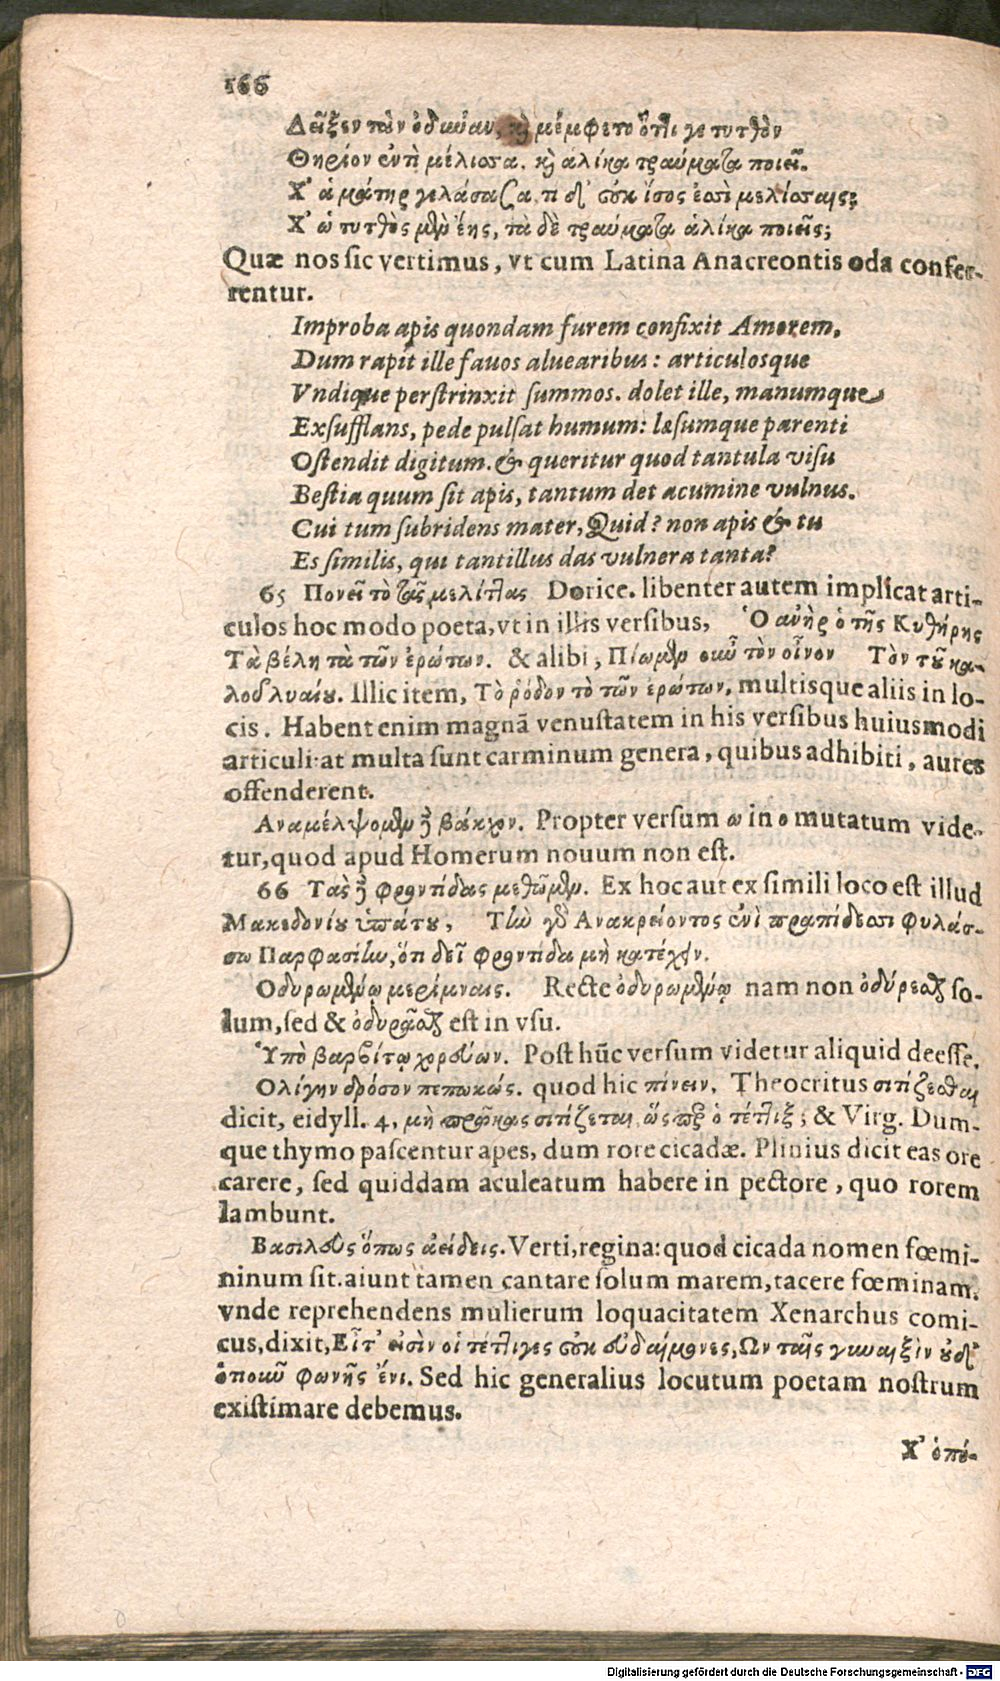 166
Δεῖξεν τὰν ὀδύναν, καὶ μέμφετο ὅττι γε τυτθὸν
Θηρίον ἐντὶ μέλισσα, καὶ ἁλίκα τραύματα ποιεῖ.
Χ' ἁ μάτηρ γελάσασα, τὶ δ' οὐκ ἴσος ἐσσὶ μελίσσαις;
Χ' ὡ τυτθὸς μὲν ἔης, τὰ δὲ τραύματα ἁλίκα ποιεῖς;
Quæ nos sic vertimus, vt cum Latina Anacreontis oda confer-
rentur.
Improba apis quondam furem confixit Amorem,
Dum rapit ille fauos aluearibus: articulosque
Vndique perstrinxit summos. dolet ille, manumque
Exsufflans, pede pulsat humum: læsumque parenti
Ostendit digitum. & queritur quod tantula visu
Bestia quum sit apis, tantum det acumine vulnus.
Cui tum subridens mater, Quid? non apis & tu
Es similis, qui tantillus das vulnera tanta?
65 Πονεῖ τὸ τᾶς μελίττας Dorice. libenter autem implicat arti-
culos hoc modo poeta, vt in illis versibus, Ὁ ἀνὴρ ὁ τῆς Κυθήρης
Τὰ βέλη τὰ τῶν ἐρώτων. & alibi, Πίωμεν οὖν τὸν οἶνον Τὸν τοῦ κα-
λοῦ λυαίου. Illic item, Τὸ ῥόδον τὸ τῶν ἐρώτων, multisque aliis in lo-
cis. Habent enim magnã venustatem in his versibus huiusmodi
articuli: at multa sunt carminum genera, quibus adhibiti, aures
offenderent.
Αναμέλψομεν δὲ βάκχον. Propter versum ω in ο mutatum vide-
tur, quod apud Homerum nouum non est.
66 Τὰς δὲ φροντίδας μεθῶμεν. Ex hoc aut ex simili loco est illud
Μακεδονίου ὑπάτου, Τὴν γὰρ Ανακρείοντος ἐνὶ πραπίδεσσι φυλάσ-
σω Παρφασίην, ὅτι δεῖ φροντίδα μὴ κατέχειν.
Οδυρωμένῳ μερίμναις. Recte ὀδυρωμένῳ nam non ὀδύρεσθαι so-
lum, sed & ὀδυρᾶσθαι est in vsu.
Ὑπὸ βαρβίτῳ χορεύων. Post hũc versum videtur aliquid deesse.
Ολίγην δρόσον πεπωκώς. quod hic πίνειν, Theocritus σιτίζεσθαι
dicit, eidyll. 4, μὴ πρῶκας σιτίζεται, ὥσπερ ὁ τέττιξ; & Virg. Dum-
que thymo pascentur apes, dum rore cicadæ. Plinius dicit eas ore
carere, sed quiddam aculeatum habere in pectore, quo rorem
lambunt.
Βασιλεὺς ὅπως ἀείδεις. Verti, regina: quod cicada nomen fœmi-
ninum sit. aiunt tamen cantare solum marem, tacere fœminam.
vnde reprehendens mulierum loquacitatem Xenarchus comi-
cus, dixit, Εἶτ' εἰσὶν οἱ τέττιγες οὐκ εὐδαίμονες, Ων ταῖς γυναιξὶν οὐδ'
ὁποιοῦν φωνῆς ἔνι. Sed hic generalius locutum poetam nostrum
existimare debemus.
Χ' ὁπό-
Digitalisierung gefördert durch die Deutsche Forschungsgemeinschaft - DFG